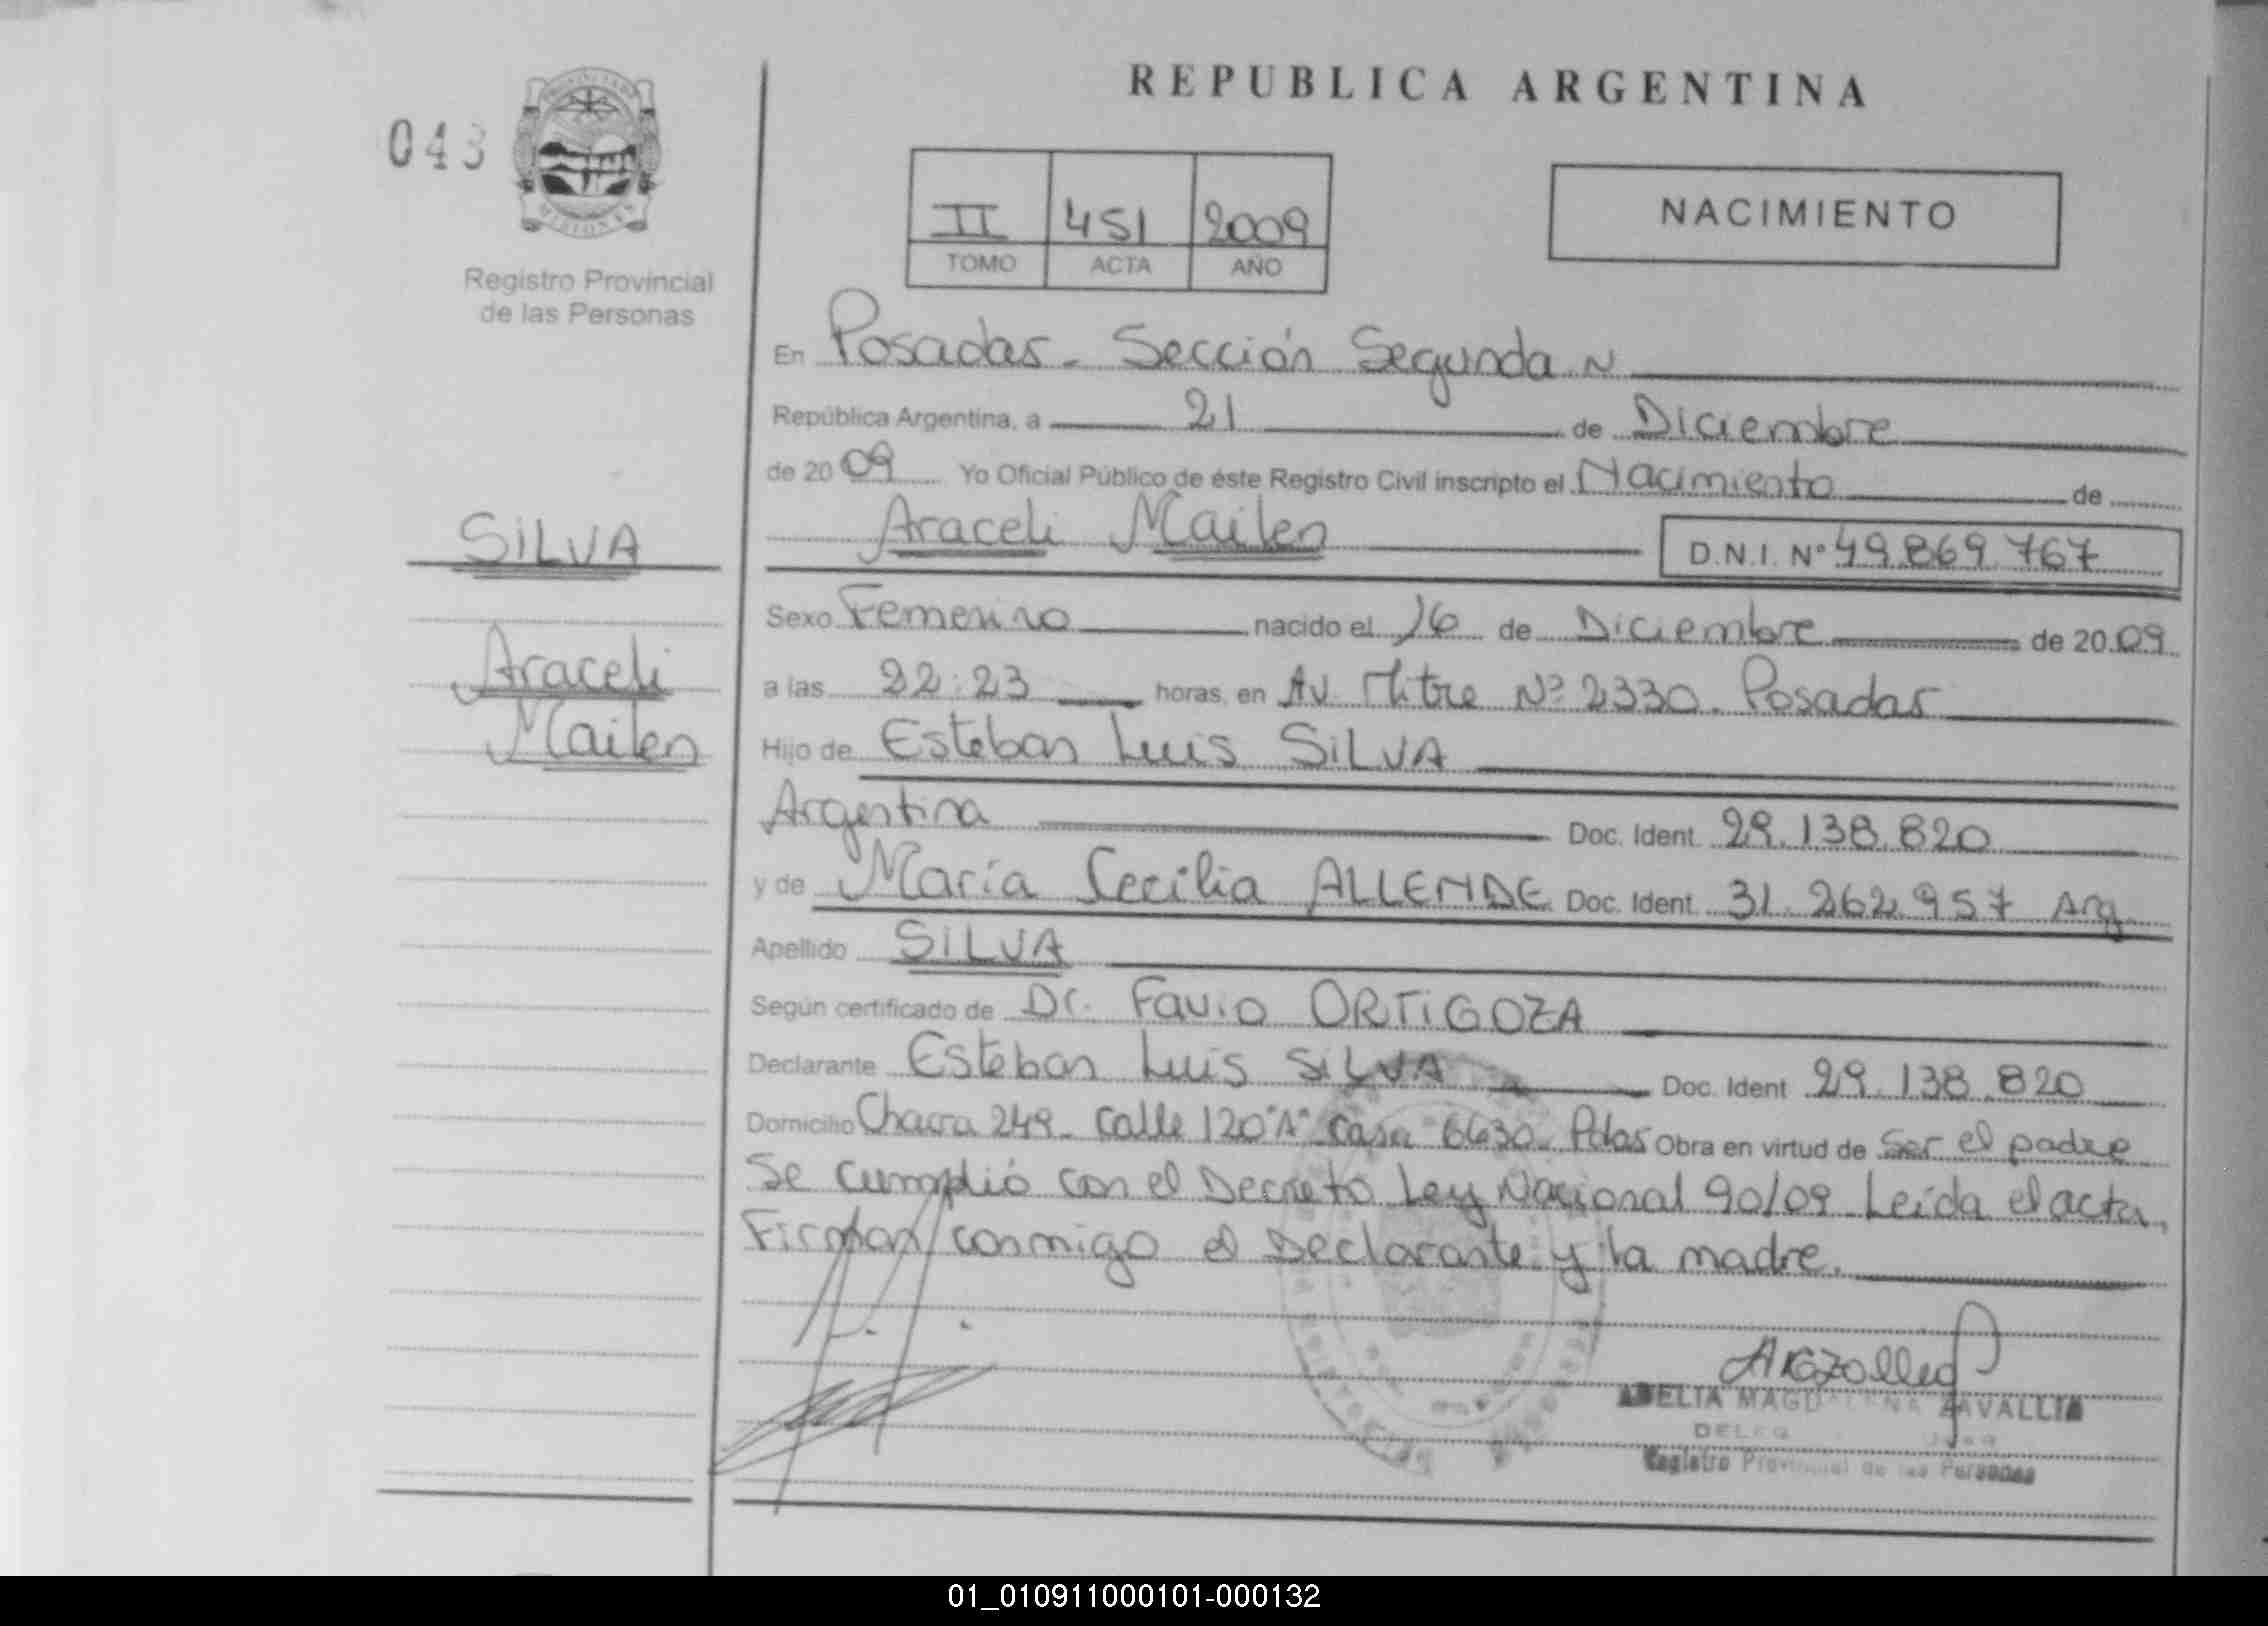 REPUBLICA ARGENTINA
043
PROVINCIA DE
MISIONES
Registro Provincial
de las Personas
II 451 2009
TOMO ACTA AÑO
NACIMIENTO
En Posadas - Sección Segunda
República Argentina, a 21 de Diciembre
de 2009 Yo Oficial Público de éste Registro Civil inscripto el Nacimiento de
Araceli Mailen D.N.I. Nº 49.869.767
SILVA
Araceli
Mailen
Sexo Femenino nacido el 16 de Diciembre de 2009
a las 22:23 horas, en Av. Mitre Nº 2330. Posadas
Hijo de Esteban Luis SILVA
Argentina Doc. Ident. 29.138.820
y de María Cecilia ALLENDE Doc. Ident. 31.262.957 Arg.
Apellido SILVA
Según certificado de Dr. Favio ORTIGOZA
Declarante Esteban Luis SILVA Doc. Ident. 29.138.820
Domicilio Chacra 249 - Calle 120 "A" Casa 6630 - Pdas Obra en virtud de ser el padre
Se cumplió con el Decreto Ley Nacional 90/09. Leída el acta,
Firman conmigo el Declarante y la madre.
ADELIA MAGDALENA ZAVALLIA
Registro Provincial de las Personas
01_010911000101-000132